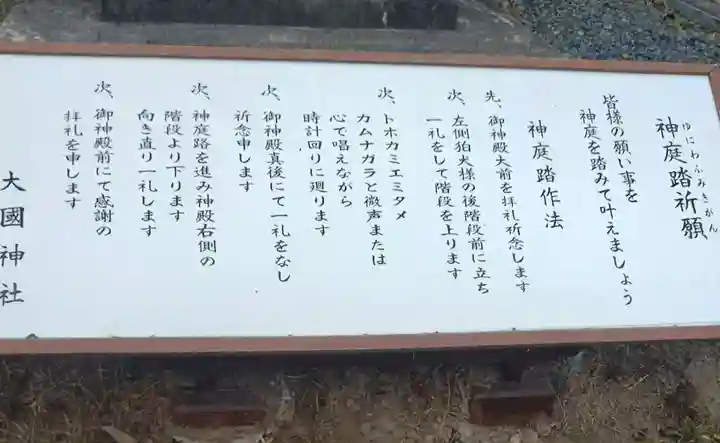 ゆにわふみきがん
神庭踏祈願
皆様の願い事を
神庭を踏みて叶えましょう
神庭踏作法
先、御神殿大前を拝礼祈念します
次、左側狛犬様の後階段前に立ち
一礼をして階段を上ります
次、トホカミエミタメ
カムナガラと微声または
心で唱えながら
時計回りに廻ります
次、御神殿真後にて一礼をなし
祈念申します
次、神庭路を進み神殿右側の
階段より下ります
向き直り一礼します
次、御神殿前にて感謝の
拝礼を申します
大國神社